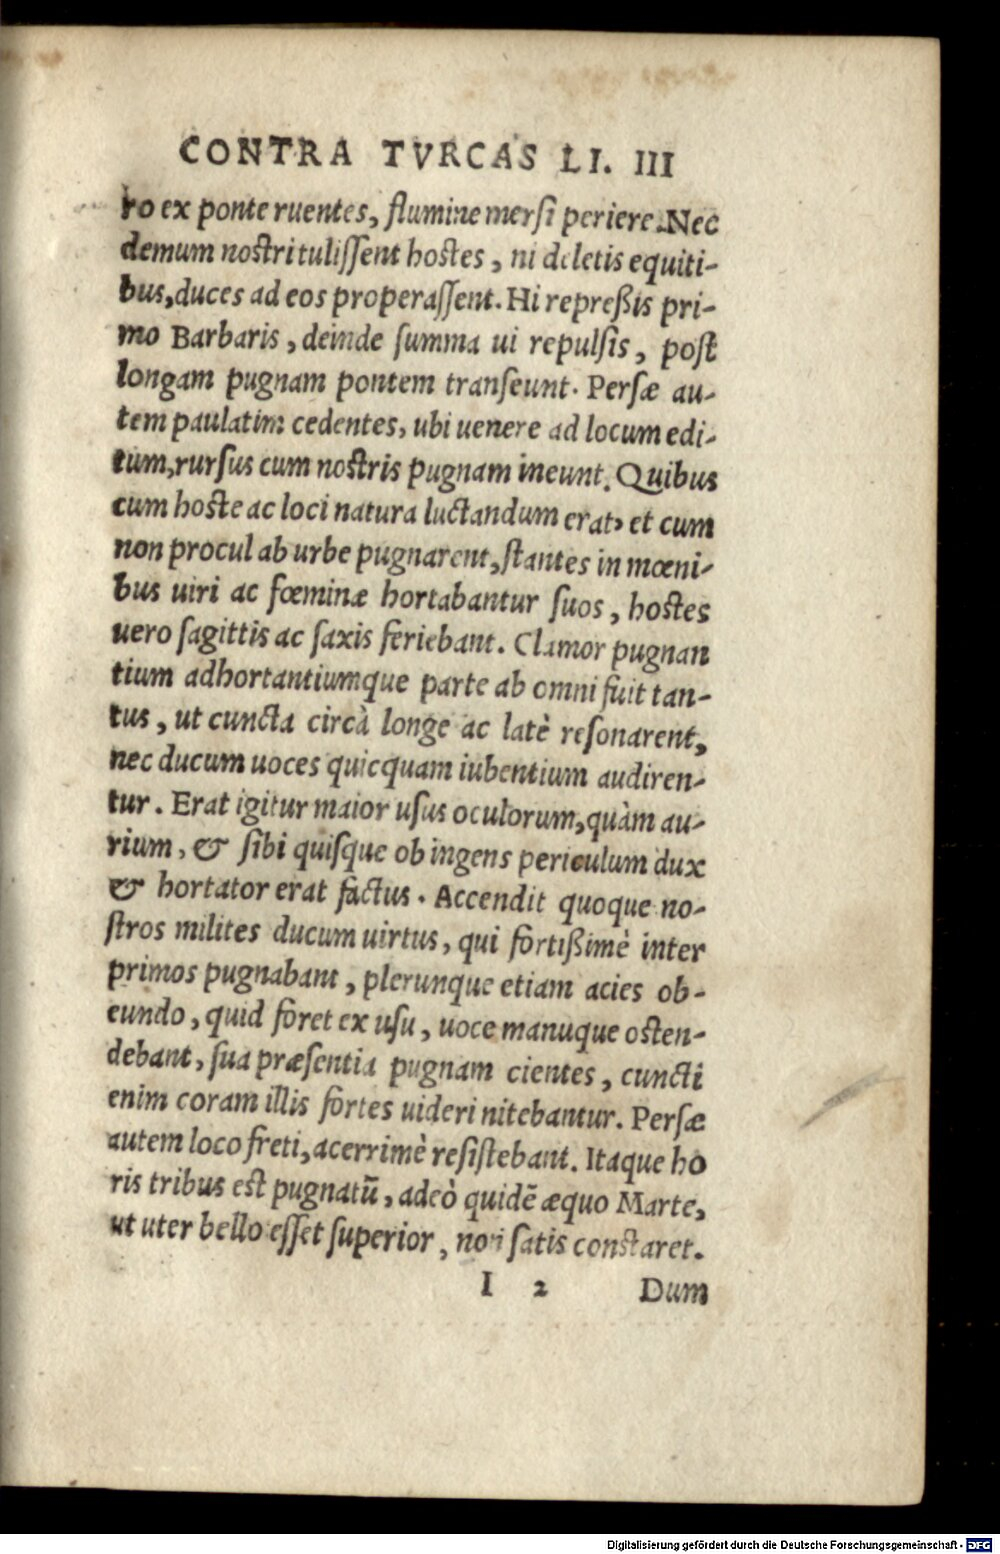 CONTRA TVRCAS LI. III
ro ex ponte ruentes, flumine mersi periere. Nec
demum nostri tulissent hostes, ni deletis equiti-
bus, duces ad eos properassent. Hi repreßis pri-
mo Barbaris, deinde summa ui repulsis, post
longam pugnam pontem transeunt. Persæ au-
tem paulatim cedentes, ubi uenere ad locum edi-
tum, rursus cum nostris pugnam ineunt. Quibus
cum hoste ac loci natura luctandum erat, et cum
non procul ab urbe pugnarent, stantes in mœni-
bus uiri ac fœminæ hortabantur suos, hostes
uero sagittis ac saxis feriebant. Clamor pugnan
tium adhortantiumque parte ab omni fuit tan-
tus, ut cuncta circà longe ac latè resonarent,
nec ducum uoces quicquam iubentium audiren-
tur. Erat igitur maior usus oculorum, quàm au-
rium, & sibi quisque ob ingens periculum dux
& hortator erat factus. Accendit quoque no-
stros milites ducum uirtus, qui fortißimè inter
primos pugnabant, plerunque etiam acies ob-
eundo, quid foret ex usu, uoce manuque osten-
debant, sua præsentia pugnam cientes, cuncti
enim coram illis fortes uideri nitebantur. Persæ
autem loco freti, acerrimè resistebant. Itaque ho
ris tribus est pugnatū, adeò quidē æquo Marte,
ut uter bello esset superior, non satis constaret.
I 2 Dum
Digitalisierung gefördert durch die Deutsche Forschungsgemeinschaft - DFG